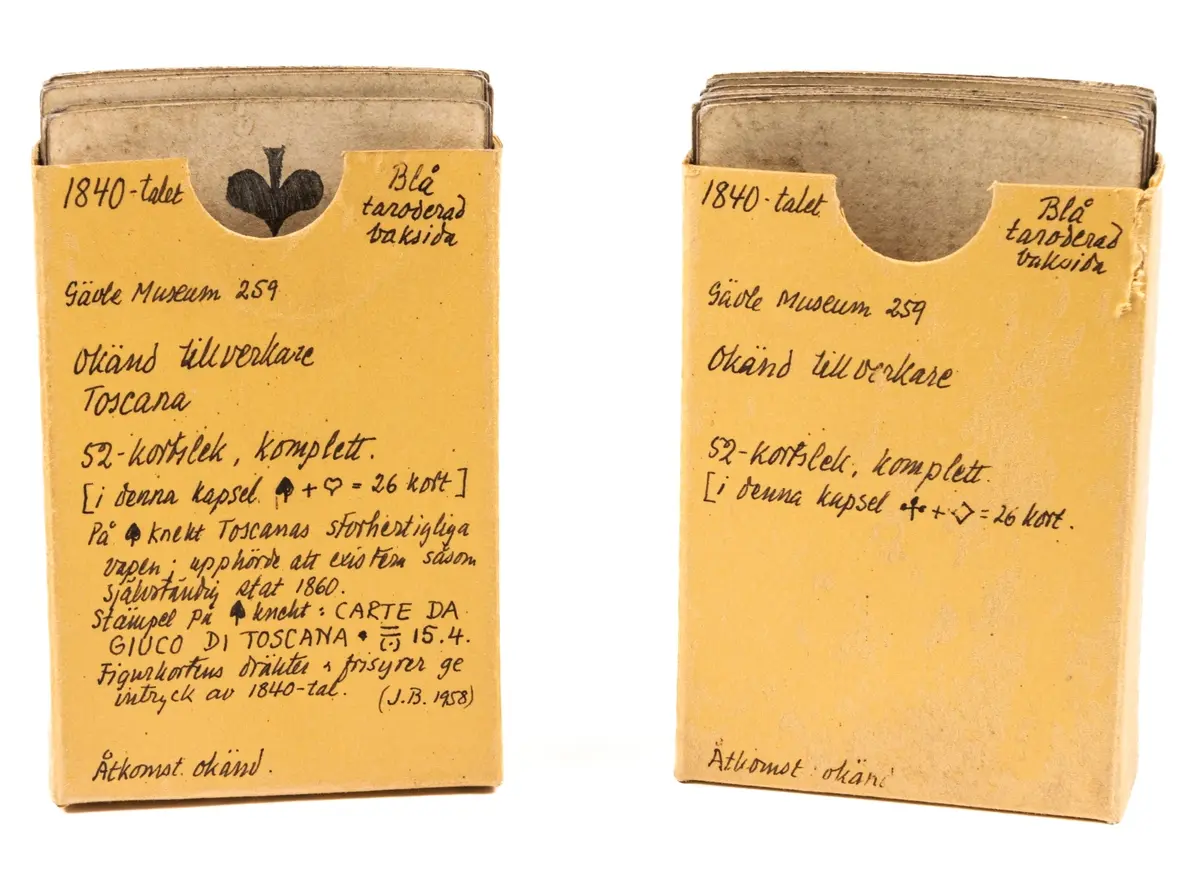 1840-talet
Blå
taroderad
baksida
Gävle Museum 259
Okänd tillverkare
Toscana
52-kortslek, komplett.
[i denna kapsel ♠ + ♡ = 26 kort]
På ♠ knekt Toscanas storhertigliga
vapen; upphörde att existera såsom
självständig stat 1860.
Stämpel på ♠ knekt: CARTE DA
GIUCO DI TOSCANA • 15.4.
Figurkortens dräkter & frisyrer ge
intryck av 1840-tal. (J.B. 1958)
Åtkomst okänd.
1840-talet
Blå
taroderad
baksida
Gävle Museum 259
Okänd tillverkare
52-kortslek, komplett.
[i denna kapsel ♣ + ♢ = 26 kort.
Åtkomst okänd